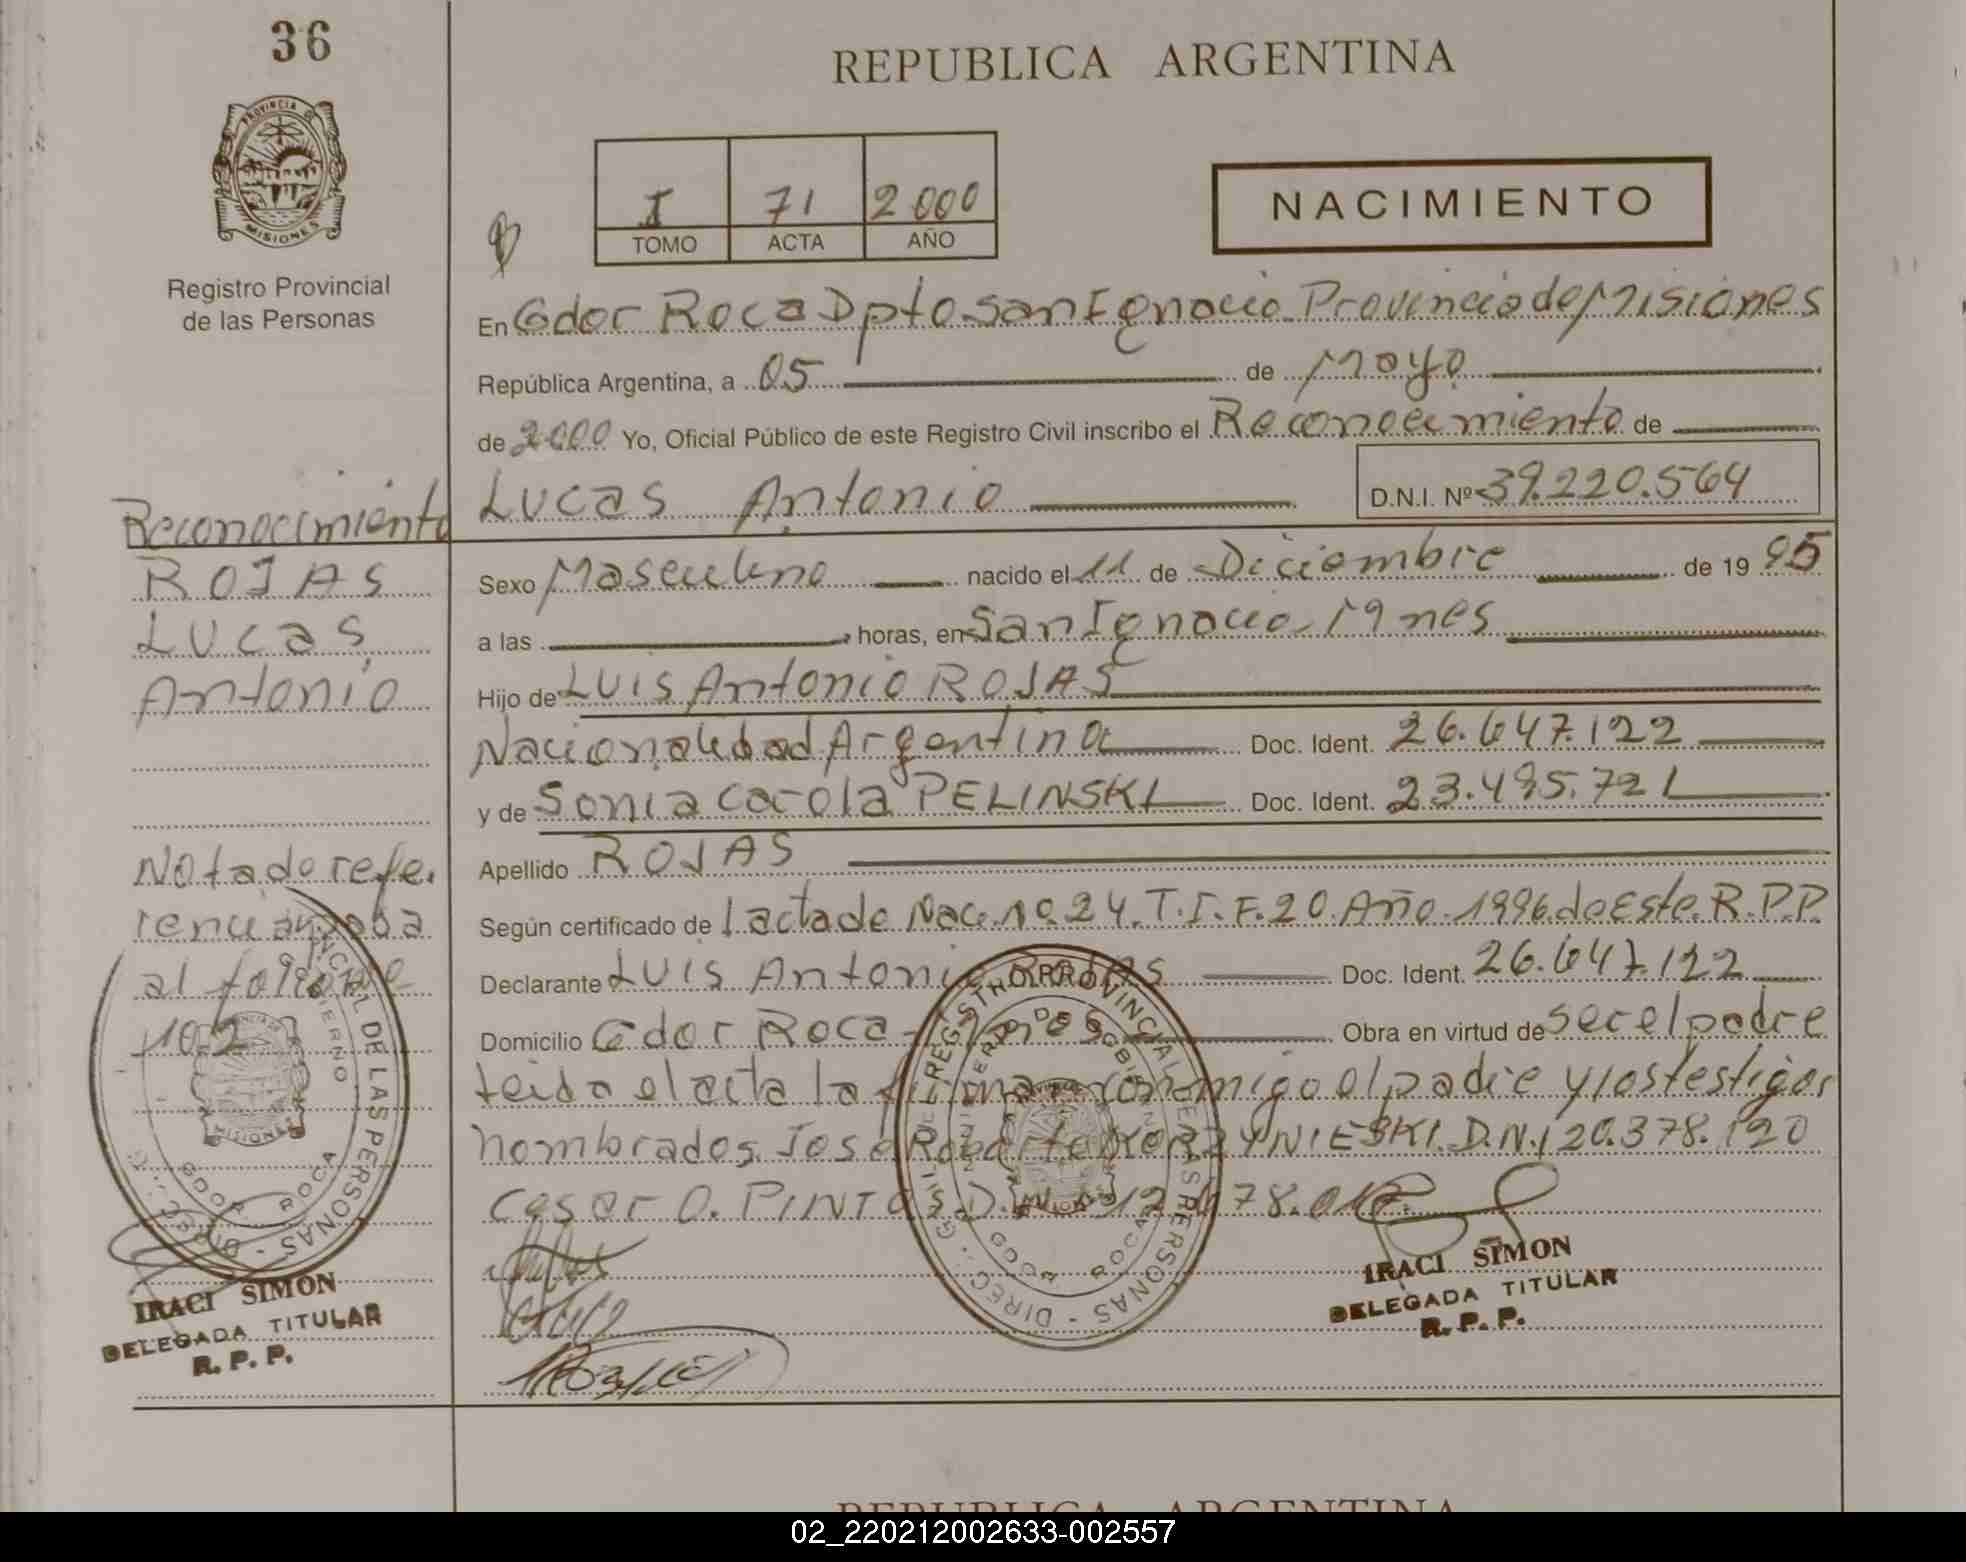 36
REPUBLICA ARGENTINA
PROVINCIA DE
MISIONES
I 71 2000
TOMO ACTA AÑO
NACIMIENTO
Registro Provincial
de las Personas
En Gdor Roca Dpto San Ignacio Provincia de Misiones
República Argentina, a 05 de Mayo
de 2000 Yo, Oficial Público de este Registro Civil inscribo el Reconocimiento de
Lucas Antonio D.N.I. Nº 39.220.564
Reconocimiento
ROJAS
Lucas
Antonio
Sexo Masculino nacido el 11 de Diciembre de 1995
a las horas, en San Ignacio Mnes
Hijo de Luis Antonio ROJAS
Nacionalidad Argentina Doc. Ident. 26.647.122
y de Sonia Carola PELINSKI Doc. Ident. 23.495.721
Apellido ROJAS
Según certificado de / acta de Nac. No. 24. T.I.F.20 Año 1996 de Este R.P.P
Declarante Luis Antonio ROJAS Doc. Ident. 26.647.122
Domicilio Gdor Roca - Mnes Obra en virtud de ser el padre
leida el acta la firman conmigo el padre y los testigos
nombrados. José Roberto KORZYNIESKI. D.N.I 20.378.120
Cesar O. PINTOS D.N.I 12. 78.017
Nota de refe.
rencia
al folio
102
IRACI SIMON
DELEGADA TITULAR
R. P. P.
IRACI SIMON
DELEGADA TITULAR
R. P. P.
REPUBLICA ARGENTINA
02_220212002633-002557